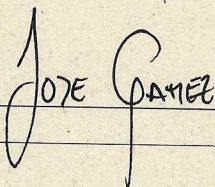 Jose Gamez